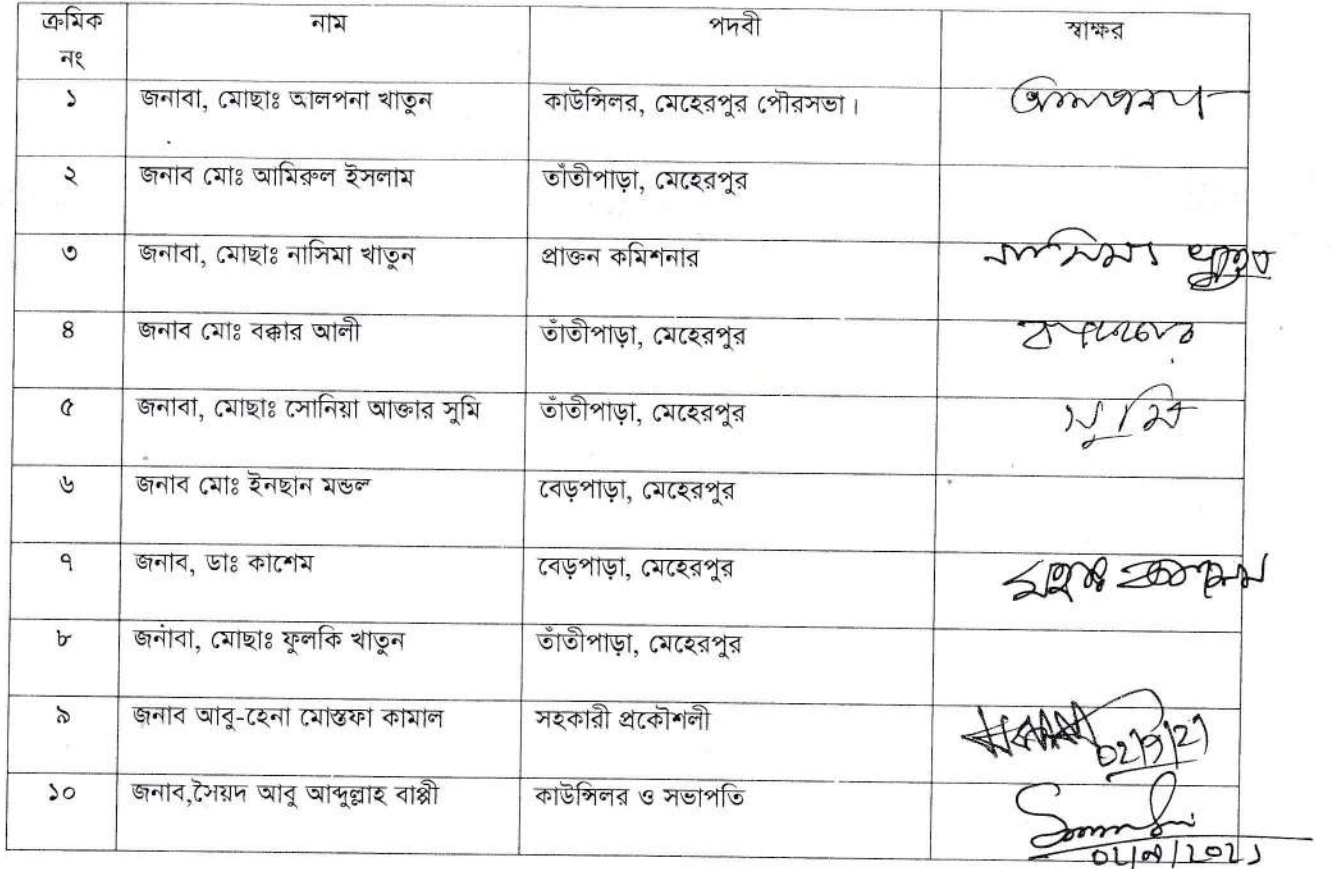 ক্রমিক নং নাম পদবী স্বাক্ষর
১ জনাবা, মোছাঃ আলপনা খাতুন কাউন্সিলর, মেহেরপুর পৌরসভা। আলপনা
২ জনাব মোঃ আমিরুল ইসলাম তাঁতীপাড়া, মেহেরপুর
৩ জনাবা, মোছাঃ নাসিমা খাতুন প্রাক্তন কমিশনার নাসিমা খাতুন
৪ জনাব মোঃ বক্কার আলী তাঁতীপাড়া, মেহেরপুর
৫ জনাবা, মোছাঃ সোনিয়া আক্তার সুমি তাঁতীপাড়া, মেহেরপুর সুমি
৬ জনাব মোঃ ইনছান মন্ডল বেড়পাড়া, মেহেরপুর
৭ জনাব, ডাঃ কাশেম বেড়পাড়া, মেহেরপুর
৮ জনাবা, মোছাঃ ফুলকি খাতুন তাঁতীপাড়া, মেহেরপুর
৯ জনাব আবু-হেনা মোস্তফা কামাল সহকারী প্রকৌশলী
১০ জনাব,সৈয়দ আবু আব্দুল্লাহ বাপ্পী কাউন্সিলর ও সভাপতি